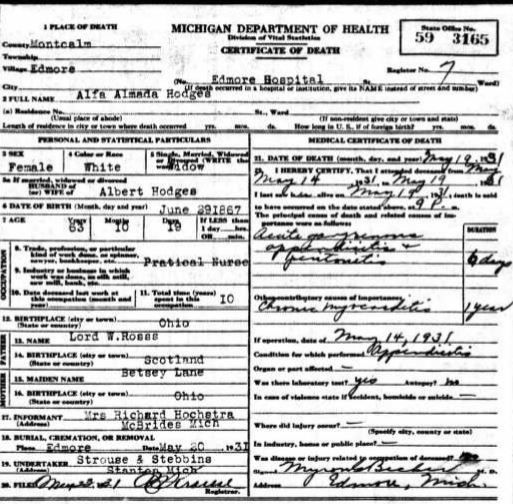 1 PLACE OF DEATH
County Montcalm
Township
Village Edmore
City
MICHIGAN DEPARTMENT OF HEALTH
Division of Vital Statistics
CERTIFICATE OF DEATH
State Office No.
59 3165
Register No. 7
(No. Edmore Hospital St. Ward)
(If death occurred in a hospital or institution, give its NAME instead of street and number)
2 FULL NAME Alfa Almada Hodges
(a) Residence No. St., Ward
(Usual place of abode) (If non-resident give city or town and state)
Length of residence in city or town where death occurred yrs. mos. ds. How long in U. S., if of foreign birth? yrs. mos. ds.
PERSONAL AND STATISTICAL PARTICULARS
3 SEX
Female
4 Color or Race
White
5 Single, Married, Widowed or Divorced (WRITE the word)
Widow
5a If married, widowed or divorced
HUSBAND of
(or) WIFE of Albert Hodges
6 DATE OF BIRTH (Month, day and year) June 291867
7 AGE Years 63 Months 10 Days 19 If LESS than 1 day HRS. OR MIN.
OCCUPATION
8. Trade, profession, or particular kind of work done, as spinner, sawyer, bookkeeper, etc. Pratical Nurse
9. Industry or business in which work was done, as silk mill, saw mill, bank, etc.
10. Date deceased last work at this occupation (month and year)
11. Total time (years) spent in this occupation 10
12. BIRTHPLACE (city or town) Ohio
(State or country)
FATHER
13. NAME Lord W.Rosss
14. BIRTHPLACE (city or town) Scotland
(State or country)
MOTHER
15. MAIDEN NAME Betsey Lane
16. BIRTHPLACE (city or town) Ohio
(State or country)
17. INFORMANT Mrs Richard Hochstra
(Address) McBrides Mich
18. BURIAL, CREMATION, OR REMOVAL
Place Edmore Date May 20 1931
19. UNDERTAKER Strouse & Stebbins
(Address) Stanton Mich
20. FILED
Registrar.
MEDICAL CERTIFICATE OF DEATH
21. DATE OF DEATH (month, day, and year) May 19 1931
22. I HEREBY CERTIFY, That I attended deceased from May
May 14 1931 May 19 1931
death is said
to have occurred on the date stated above, at 9 P. m.
The principal cause of death and related causes of importance were as follows:
DURATION
Acute gangrenous
appendicitis &
peritonitis 6 days
Other contributory causes of importance:
Chronic myocarditis 1 year
If operation, date of May 14, 1931
Condition for which performed Appendicitis
Organ or part affected —
Was there laboratory test? yes Autopsy? no
In case of violence state if accident, homicide or suicide —
Where did injury occur? —
(Specify city, county or state)
In industry, home or public place? —
Was disease or injury related to occupation of deceased? no
Address Edmore, Mich.